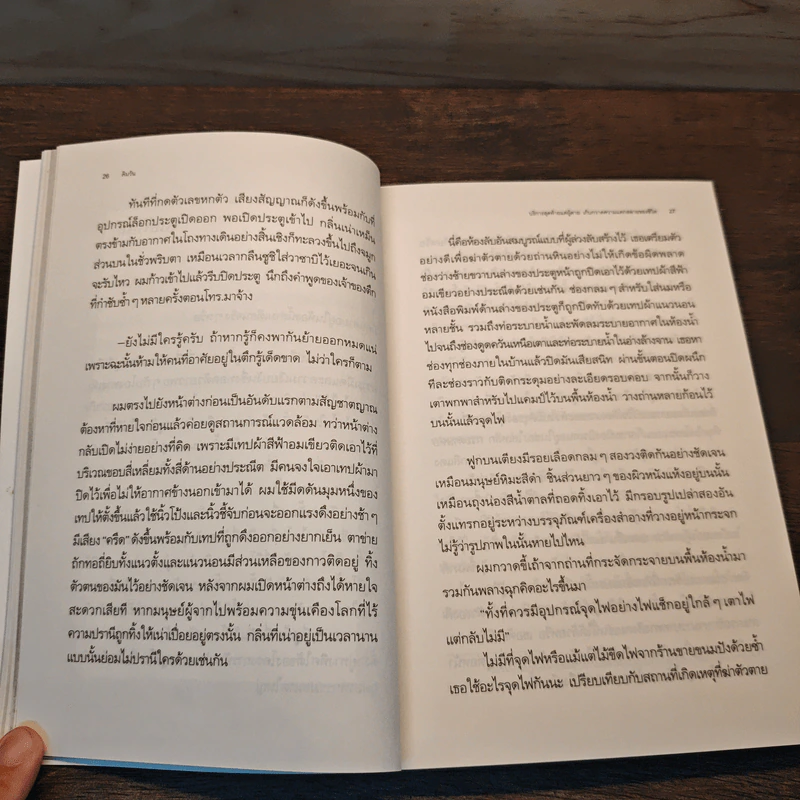 26 คิมวัน
ทันทีที่กดตัวเลขหกตัว เสียงสัญญาณก็ดังขึ้นพร้อมกับที่
อุปกรณ์ล็อกประตูเปิดออก พอเปิดประตูเข้าไป กลิ่นเน่าเหม็น
ตรงข้ามกับอากาศในโถงทางเดินอย่างสิ้นเชิงก็ทะลวงขึ้นไปถึงจมูก
ส่วนบนในชั่วพริบตา เหมือนเวลากลืนซูชิใส่วาซาบิไว้เยอะจนเกิน
จะรับไหว ผมก้าวเข้าไปแล้วรีบปิดประตู นึกถึงคำพูดของเจ้าของตึก
ที่กำชับซ้ำๆ หลายครั้งตอนโทร.มาจ้าง
–ยังไม่มีใครรู้ครับ ถ้าหากรู้ก็คงพากันย้ายออกหมดแน่
เพราะฉะนั้นห้ามให้คนที่อาศัยอยู่ในตึกรู้เด็ดขาด ไม่ว่าใครก็ตาม
ผมตรงไปยังหน้าต่างก่อนเป็นอันดับแรกตามสัญชาตญาณ
ต้องหาที่หายใจก่อนแล้วค่อยดูสถานการณ์แวดล้อม ทว่าหน้าต่าง
กลับเปิดไม่ง่ายอย่างที่คิด เพราะมีเทปผ้าสีฟ้าอมเขียวติดเอาไว้ที่
บริเวณขอบสี่เหลี่ยมทั้งสี่ด้านอย่างประณีต มีคนจงใจเอาเทปผ้ามา
ปิดไว้เพื่อไม่ให้อากาศข้างนอกเข้ามาได้ ผมใช้มีดดันมุมหนึ่งของ
เทปให้ตั้งขึ้นแล้วใช้นิ้วโป้งและนิ้วชี้จับก่อนจะออกแรงดึงอย่างช้าๆ
มีเสียง “ครืด” ดังขึ้นพร้อมกับเทปที่ถูกดึงออกอย่างยากเย็น ตาข่าย
ถักทอถี่ยิบทั้งแนวตั้งและแนวนอนมีส่วนเหลือของกาวติดอยู่ ทิ้ง
ตัวตนของมันไว้อย่างชัดเจน หลังจากผมเปิดหน้าต่างถึงได้หายใจ
สะดวกเสียที หากมนุษย์ผู้จากไปพร้อมความขุ่นเคืองโลกที่ไร้
ความปรานีถูกทิ้งให้เน่าเปื่อยอยู่ตรงนั้น กลิ่นที่เน่าอยู่เป็นเวลานาน
แบบนั้นย่อมไม่ปรานีใครด้วยเช่นกัน
27
นี่คือห้องลับอันสมบูรณ์แบบที่ผู้ล่วงลับสร้างไว้ เธอเตรียมตัว
อย่างดีเพื่อฆ่าตัวตายด้วยถ่านหินอย่างไม่ให้เกิดข้อผิดพลาด
ช่องว่างซ้ายขวาบนล่างของประตูหน้าถูกปิดเอาไว้ด้วยเทปผ้าสีฟ้า
อมเขียวอย่างประณีตด้วยเช่นกัน ช่องกลมๆ สำหรับใส่นมหรือ
หนังสือพิมพ์ด้านล่างของประตูก็ถูกปิดทับด้วยเทปผ้าแนวนอน
หลายชั้น รวมถึงท่อระบายน้ำและพัดลมระบายอากาศในห้องน้ำ
ไปจนถึงช่องดูดควันเหนือเตาและท่อระบายน้ำในอ่างล้างจาน เธอหา
ช่องทุกช่องภายในบ้านแล้วปิดมันเสียสนิท ผ่านขั้นตอนปิดผนึก
ทีละช่องราวกับติดกระดุมอย่างละเอียดรอบคอบ จากนั้นก็วาง
เตาพกพาสำหรับไปแคมป์ไว้บนพื้นห้องน้ำ วางถ่านหลายก้อนไว้
บนนั้นแล้วจุดไฟ
ฟูกบนเตียงมีรอยเลือดกลมๆ สองวงติดกันอย่างชัดเจน
เหมือนมนุษย์หิมะสีดำ ชิ้นส่วนยาวๆ ของผิวหนังแห้งอยู่บนนั้น
เหมือนถุงน่องสีน้ำตาลที่ถอดทิ้งเอาไว้ มีกรอบรูปเปล่าสองอัน
ตั้งแทรกอยู่ระหว่างบรรจุภัณฑ์เครื่องสำอางที่วางอยู่หน้ากระจก
ไม่รู้ว่ารูปภาพในนั้นหายไปไหน
ผมกวาดขี้เถ้าจากถ่านที่กระจัดกระจายบนพื้นห้องน้ำมา
รวมกันพลางฉุกคิดอะไรขึ้นมา
“ทั้งที่ควรมีอุปกรณ์จุดไฟอย่างไฟแช็กอยู่ใกล้ๆ เตาไฟ
แต่กลับไม่มี”
ไม่มีที่จุดไฟหรือแม้แต่ไม้ขีดไฟจากร้านขายขนมปังด้วยซ้ำ
เธอใช้อะไรจุดไฟกันนะ เปรียบเทียบกับสถานที่เกิดเหตุที่ฆ่าตัวตาย